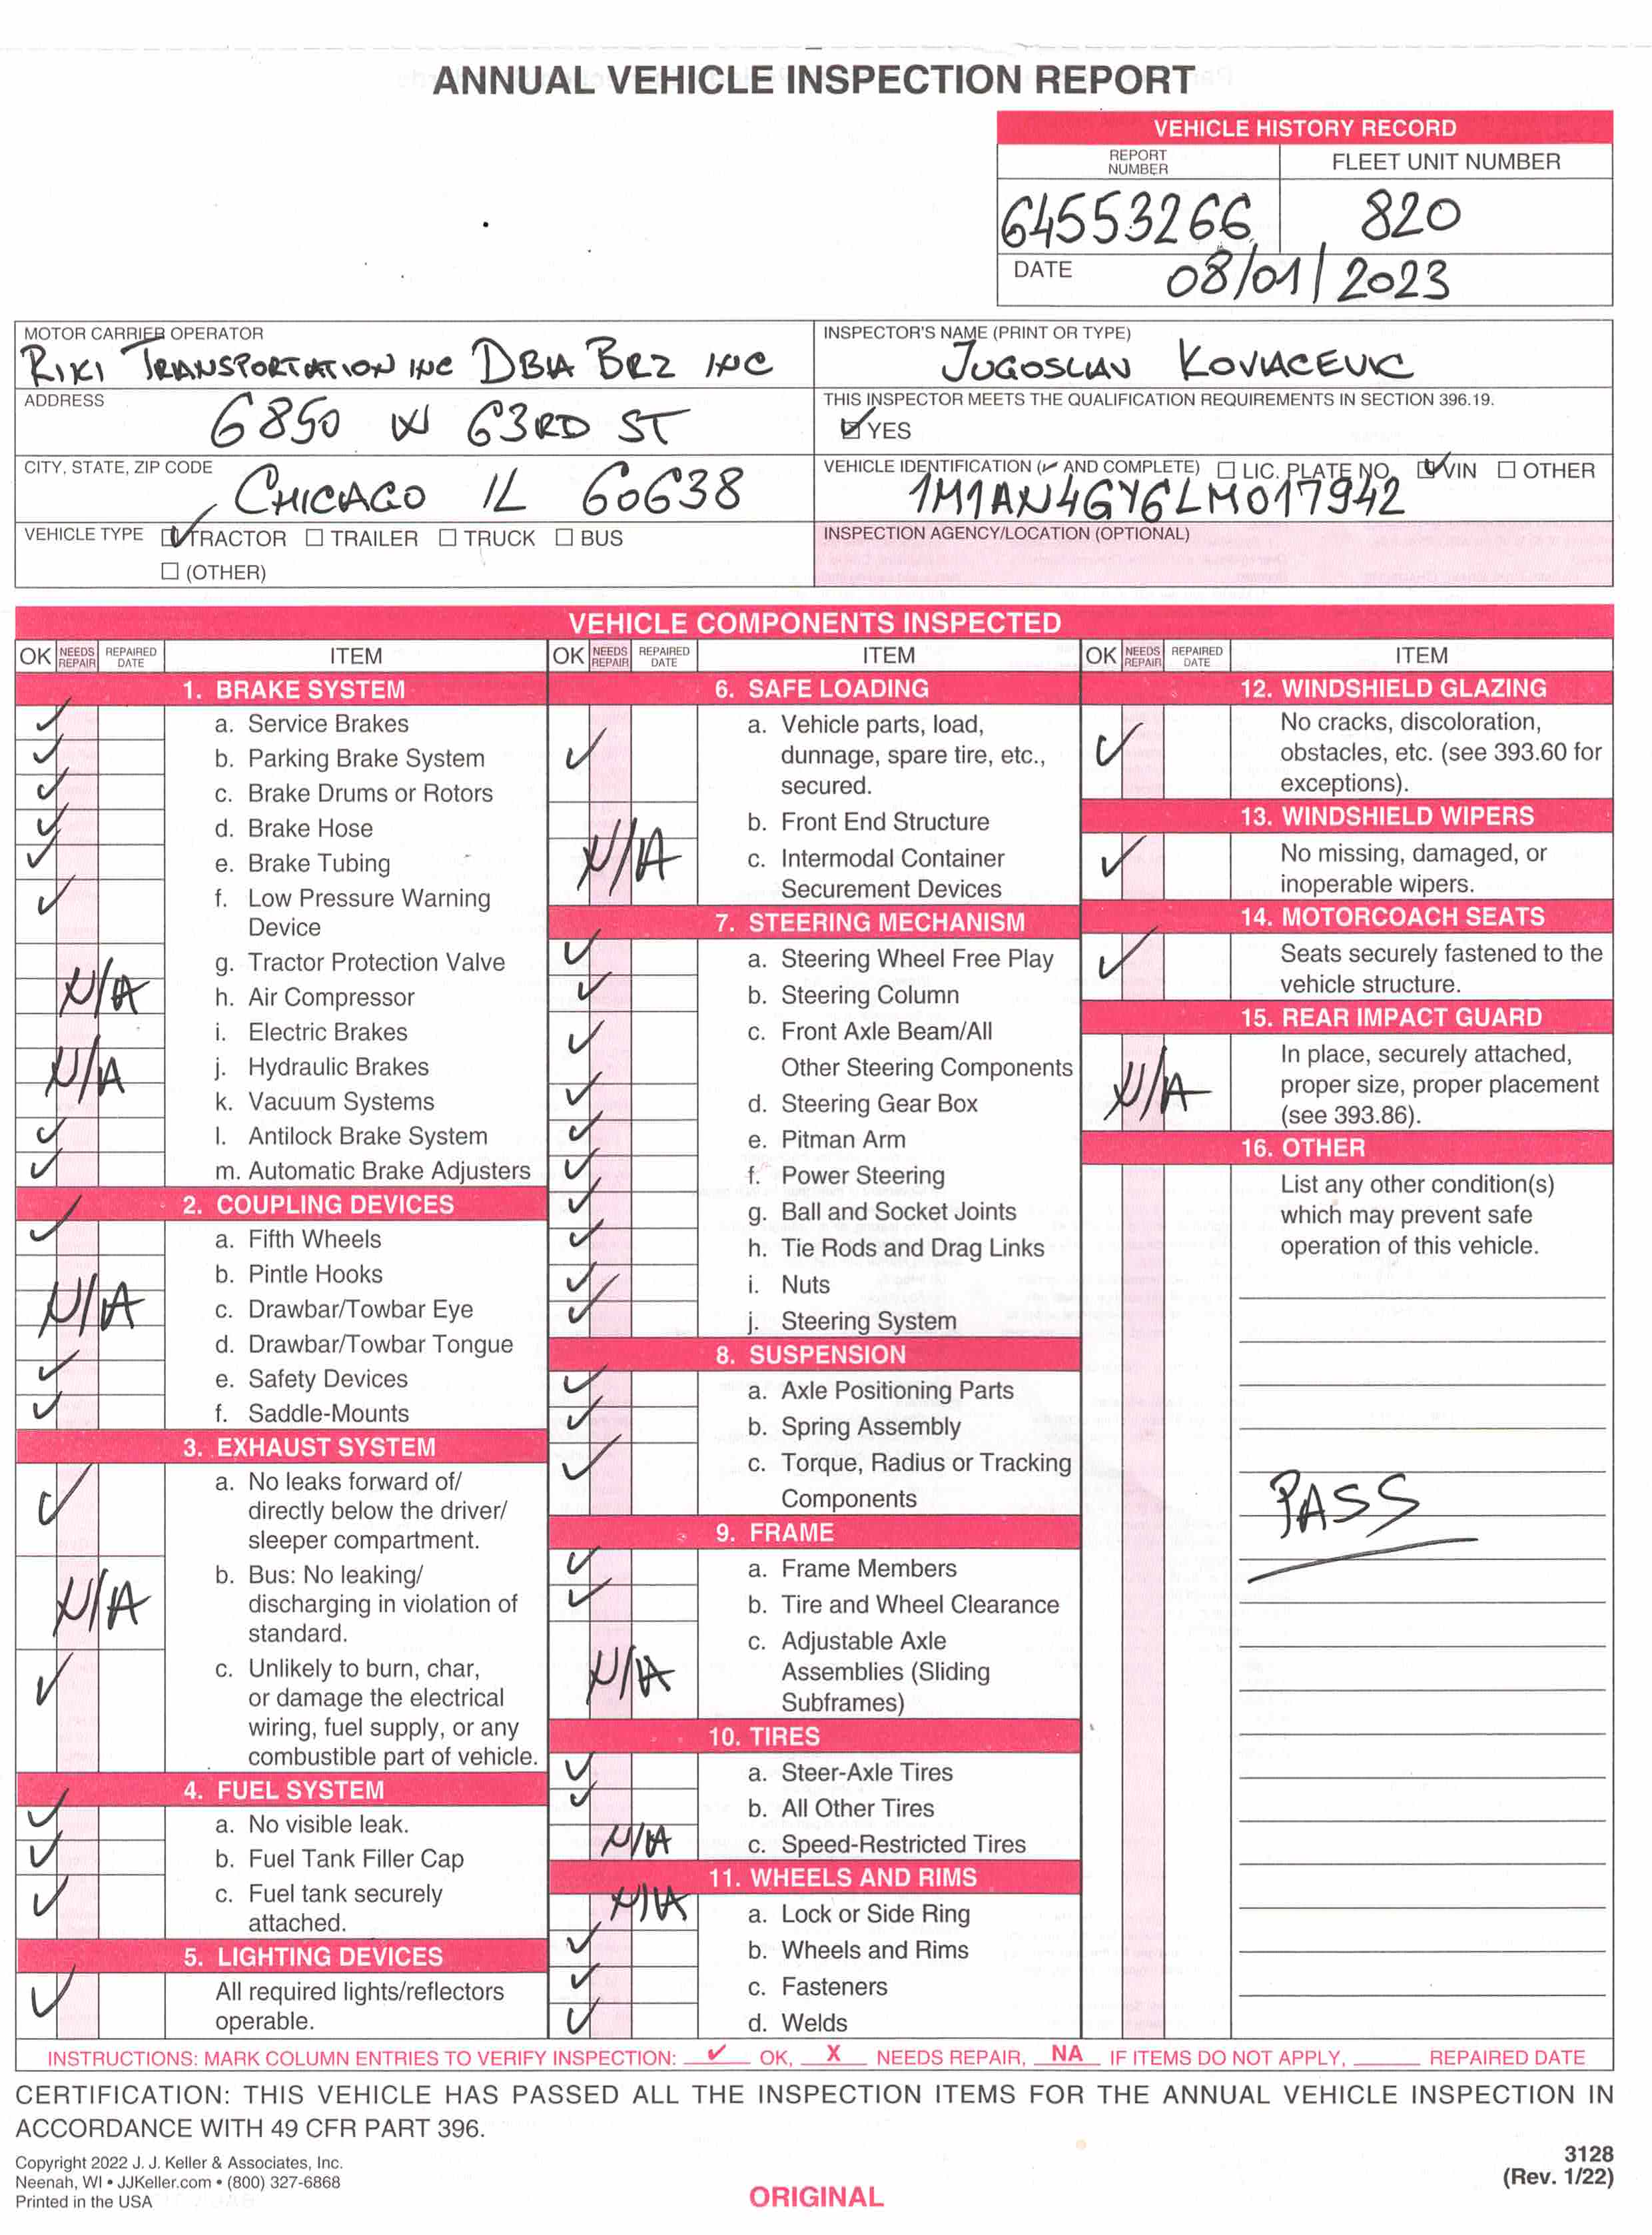 ANNUAL VEHICLE INSPECTION REPORT
VEHICLE HISTORY RECORD
REPORT NUMBER
FLEET UNIT NUMBER
64553266
820
DATE 08/01/2023
MOTOR CARRIER OPERATOR
RIKI TRANSPORTATION INC DBA BRZ INC
INSPECTOR'S NAME (PRINT OR TYPE)
JUGOSLAV KOVACEVIC
ADDRESS
6850 W 63RD ST
THIS INSPECTOR MEETS THE QUALIFICATION REQUIREMENTS IN SECTION 396.19.
☑ YES
CITY, STATE, ZIP CODE
CHICAGO IL 60638
VEHICLE IDENTIFICATION (✓ AND COMPLETE) ☐ LIC. PLATE NO. ☑ VIN ☐ OTHER
1M1AN4GY6LM017942
VEHICLE TYPE ☑ TRACTOR ☐ TRAILER ☐ TRUCK ☐ BUS
☐ (OTHER)
INSPECTION AGENCY/LOCATION (OPTIONAL)
VEHICLE COMPONENTS INSPECTED
OK NEEDS REPAIR REPAIRED DATE ITEM
1. BRAKE SYSTEM
✓ a. Service Brakes
✓ b. Parking Brake System
✓ c. Brake Drums or Rotors
✓ d. Brake Hose
✓ e. Brake Tubing
✓ f. Low Pressure Warning
Device
g. Tractor Protection Valve
N/A h. Air Compressor
i. Electric Brakes
N/A j. Hydraulic Brakes
k. Vacuum Systems
✓ l. Antilock Brake System
✓ m. Automatic Brake Adjusters
2. COUPLING DEVICES
✓ a. Fifth Wheels
b. Pintle Hooks
N/A c. Drawbar/Towbar Eye
d. Drawbar/Towbar Tongue
✓ e. Safety Devices
✓ f. Saddle-Mounts
3. EXHAUST SYSTEM
a. No leaks forward of/
✓ directly below the driver/
sleeper compartment.
b. Bus: No leaking/
N/A discharging in violation of
standard.
✓ c. Unlikely to burn, char,
or damage the electrical
wiring, fuel supply, or any
combustible part of vehicle.
4. FUEL SYSTEM
✓ a. No visible leak.
✓ b. Fuel Tank Filler Cap
✓ c. Fuel tank securely
attached.
5. LIGHTING DEVICES
✓ All required lights/reflectors
operable.
OK NEEDS REPAIR REPAIRED DATE ITEM
6. SAFE LOADING
a. Vehicle parts, load,
✓ dunnage, spare tire, etc.,
secured.
b. Front End Structure
N/A c. Intermodal Container
Securement Devices
7. STEERING MECHANISM
✓ a. Steering Wheel Free Play
✓ b. Steering Column
✓ c. Front Axle Beam/All
Other Steering Components
✓ d. Steering Gear Box
✓ e. Pitman Arm
✓ f. Power Steering
✓ g. Ball and Socket Joints
✓ h. Tie Rods and Drag Links
✓ i. Nuts
✓ j. Steering System
8. SUSPENSION
✓ a. Axle Positioning Parts
✓ b. Spring Assembly
✓ c. Torque, Radius or Tracking
Components
9. FRAME
✓ a. Frame Members
✓ b. Tire and Wheel Clearance
c. Adjustable Axle
N/A Assemblies (Sliding
Subframes)
10. TIRES
✓ a. Steer-Axle Tires
✓ b. All Other Tires
N/A c. Speed-Restricted Tires
11. WHEELS AND RIMS
N/A a. Lock or Side Ring
✓ b. Wheels and Rims
✓ c. Fasteners
✓ d. Welds
OK NEEDS REPAIR REPAIRED DATE ITEM
12. WINDSHIELD GLAZING
No cracks, discoloration,
✓ obstacles, etc. (see 393.60 for
exceptions).
13. WINDSHIELD WIPERS
✓ No missing, damaged, or
inoperable wipers.
14. MOTORCOACH SEATS
✓ Seats securely fastened to the
vehicle structure.
15. REAR IMPACT GUARD
In place, securely attached,
N/A proper size, proper placement
(see 393.86).
16. OTHER
List any other condition(s)
which may prevent safe
operation of this vehicle.
PASS
INSTRUCTIONS: MARK COLUMN ENTRIES TO VERIFY INSPECTION: ✓ OK, X NEEDS REPAIR, NA IF ITEMS DO NOT APPLY, ____ REPAIRED DATE
CERTIFICATION: THIS VEHICLE HAS PASSED ALL THE INSPECTION ITEMS FOR THE ANNUAL VEHICLE INSPECTION IN
ACCORDANCE WITH 49 CFR PART 396.
Copyright 2022 J. J. Keller & Associates, Inc.
Neenah, WI • JJKeller.com • (800) 327-6868
Printed in the USA
ORIGINAL
3128
(Rev. 1/22)